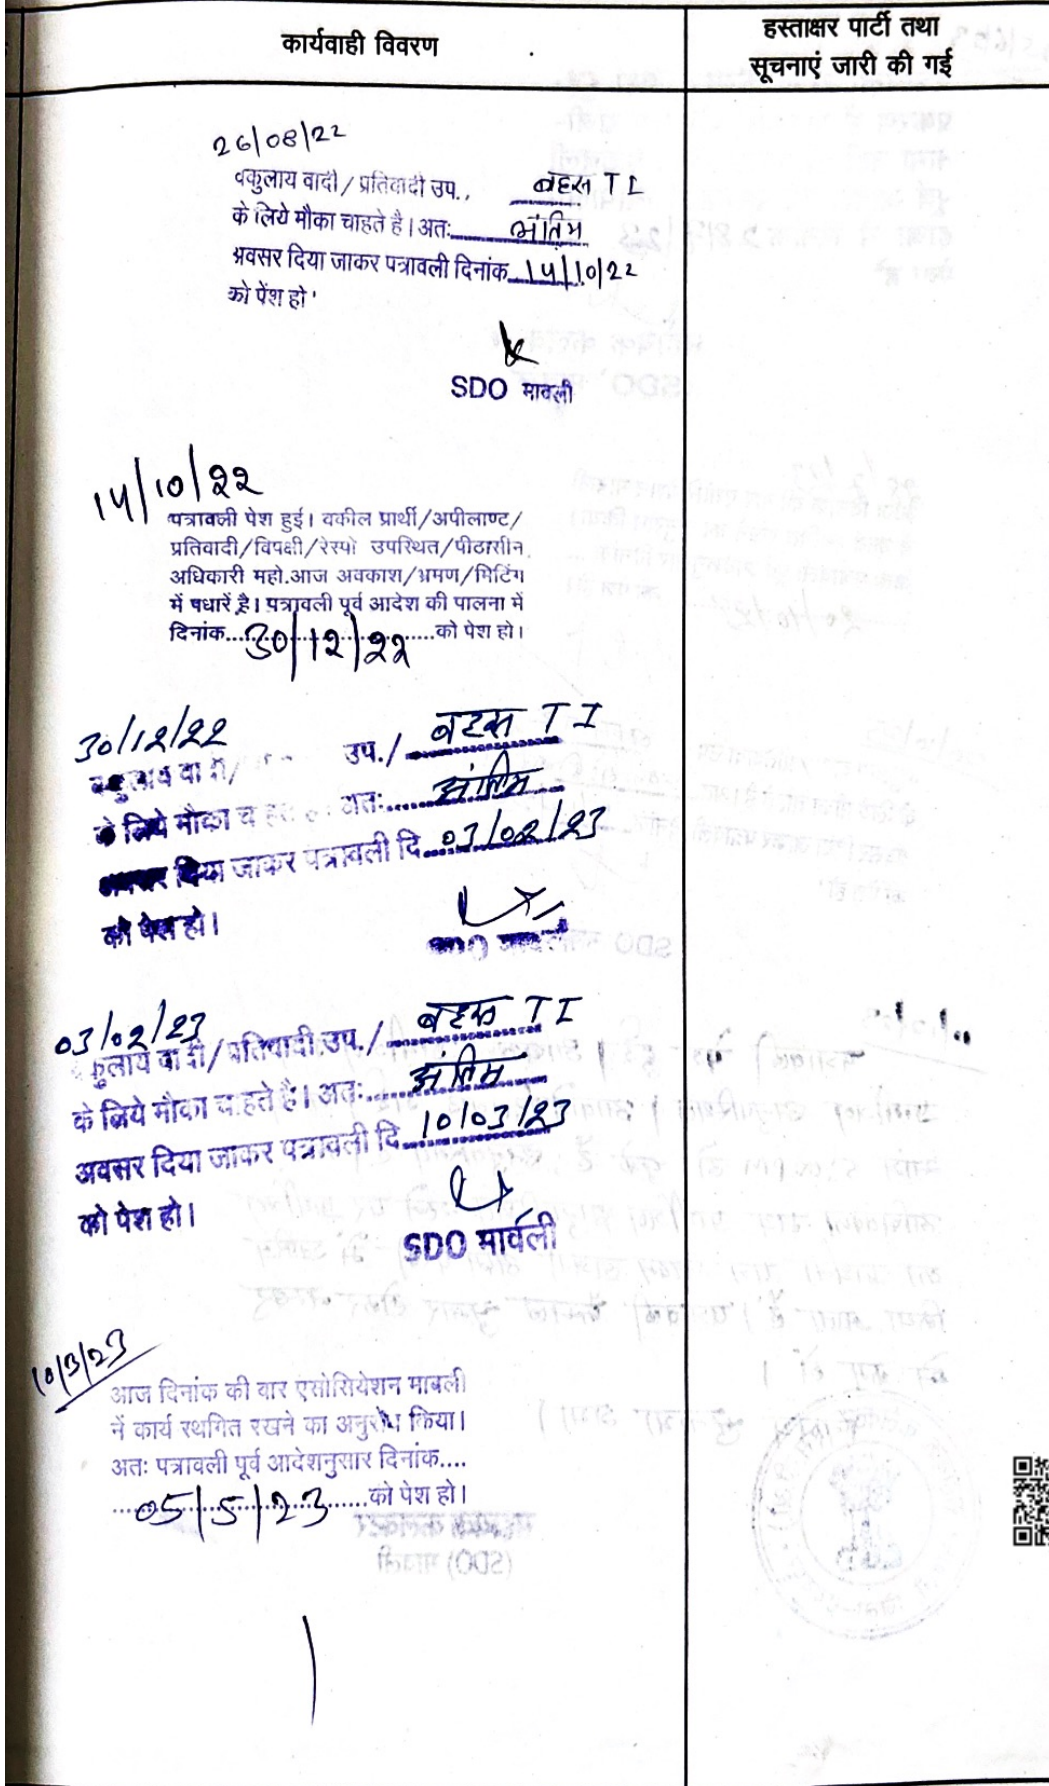 कार्यवाही विवरण
हस्ताक्षर पार्टी तथा
सूचनाएं जारी की गई
26/08/22
वकुलाय वादी / प्रतिवादी उप., बहस T I
के लिये मौका चाहते है। अतः अंतिम
अवसर दिया जाकर पत्रावली दिनांक 14/10/22
को पेंश हो
SDO मावली
14/10/22
पत्रावली पेश हुई। वकील प्रार्थी/अपीलाण्ट/
प्रतिवादी/विपक्षी/रेस्पो उपस्थित/पीठासीन
अधिकारी महो.आज अवकाश/भ्रमण/मिटिंग
में पधारें है। पत्रावली पूर्व आदेश की पालना में
दिनांक....30/12/22....को पेश हो।
30/12/22
वकुलाय वादी/ उप./ बहस T I
के लिये मौका चाहते अतः अंतिम
अवसर दिया जाकर पत्रावली दि 03/02/23
को पेश हो।
SDO मावली
03/02/23
कुलाय वादी/ प्रतिवादी उप./ बहस T I
के लिये मौका चाहते है। अतः अंतिम
अवसर दिया जाकर पत्रावली दि 10/03/23
को पेश हो।
SDO मावली
10/3/23
आज दिनांक की वार एसोसियेशन मावली
नें कार्य स्थगित रखने का अनुरोध किया।
अतः पत्रावली पूर्व आदेशनुसार दिनांक....
05/5/23 को पेश हो।